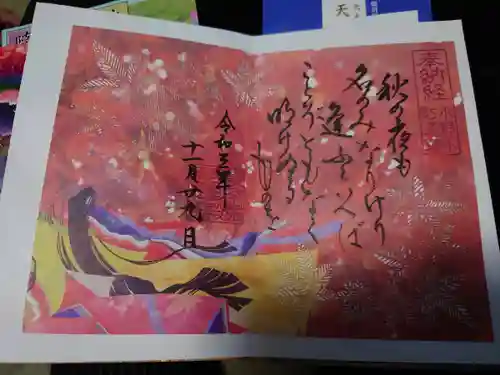 奉納経
秋の夜も
名のみなりけり
逢ふといへば
ことぞともなく
明けぬる
ものを
令和三年
十一月廿九日
天